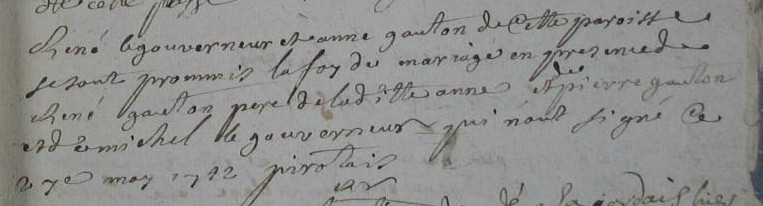 René le gouverneur et anne gaulton de Cette paroisse
se sont prommis la foy de mariage en presence de
René gaulton pere de laditte anne et de pierre gaulton
et de michel le gouverneur qui n'ont signé Ce
27e may 1742 pirotais